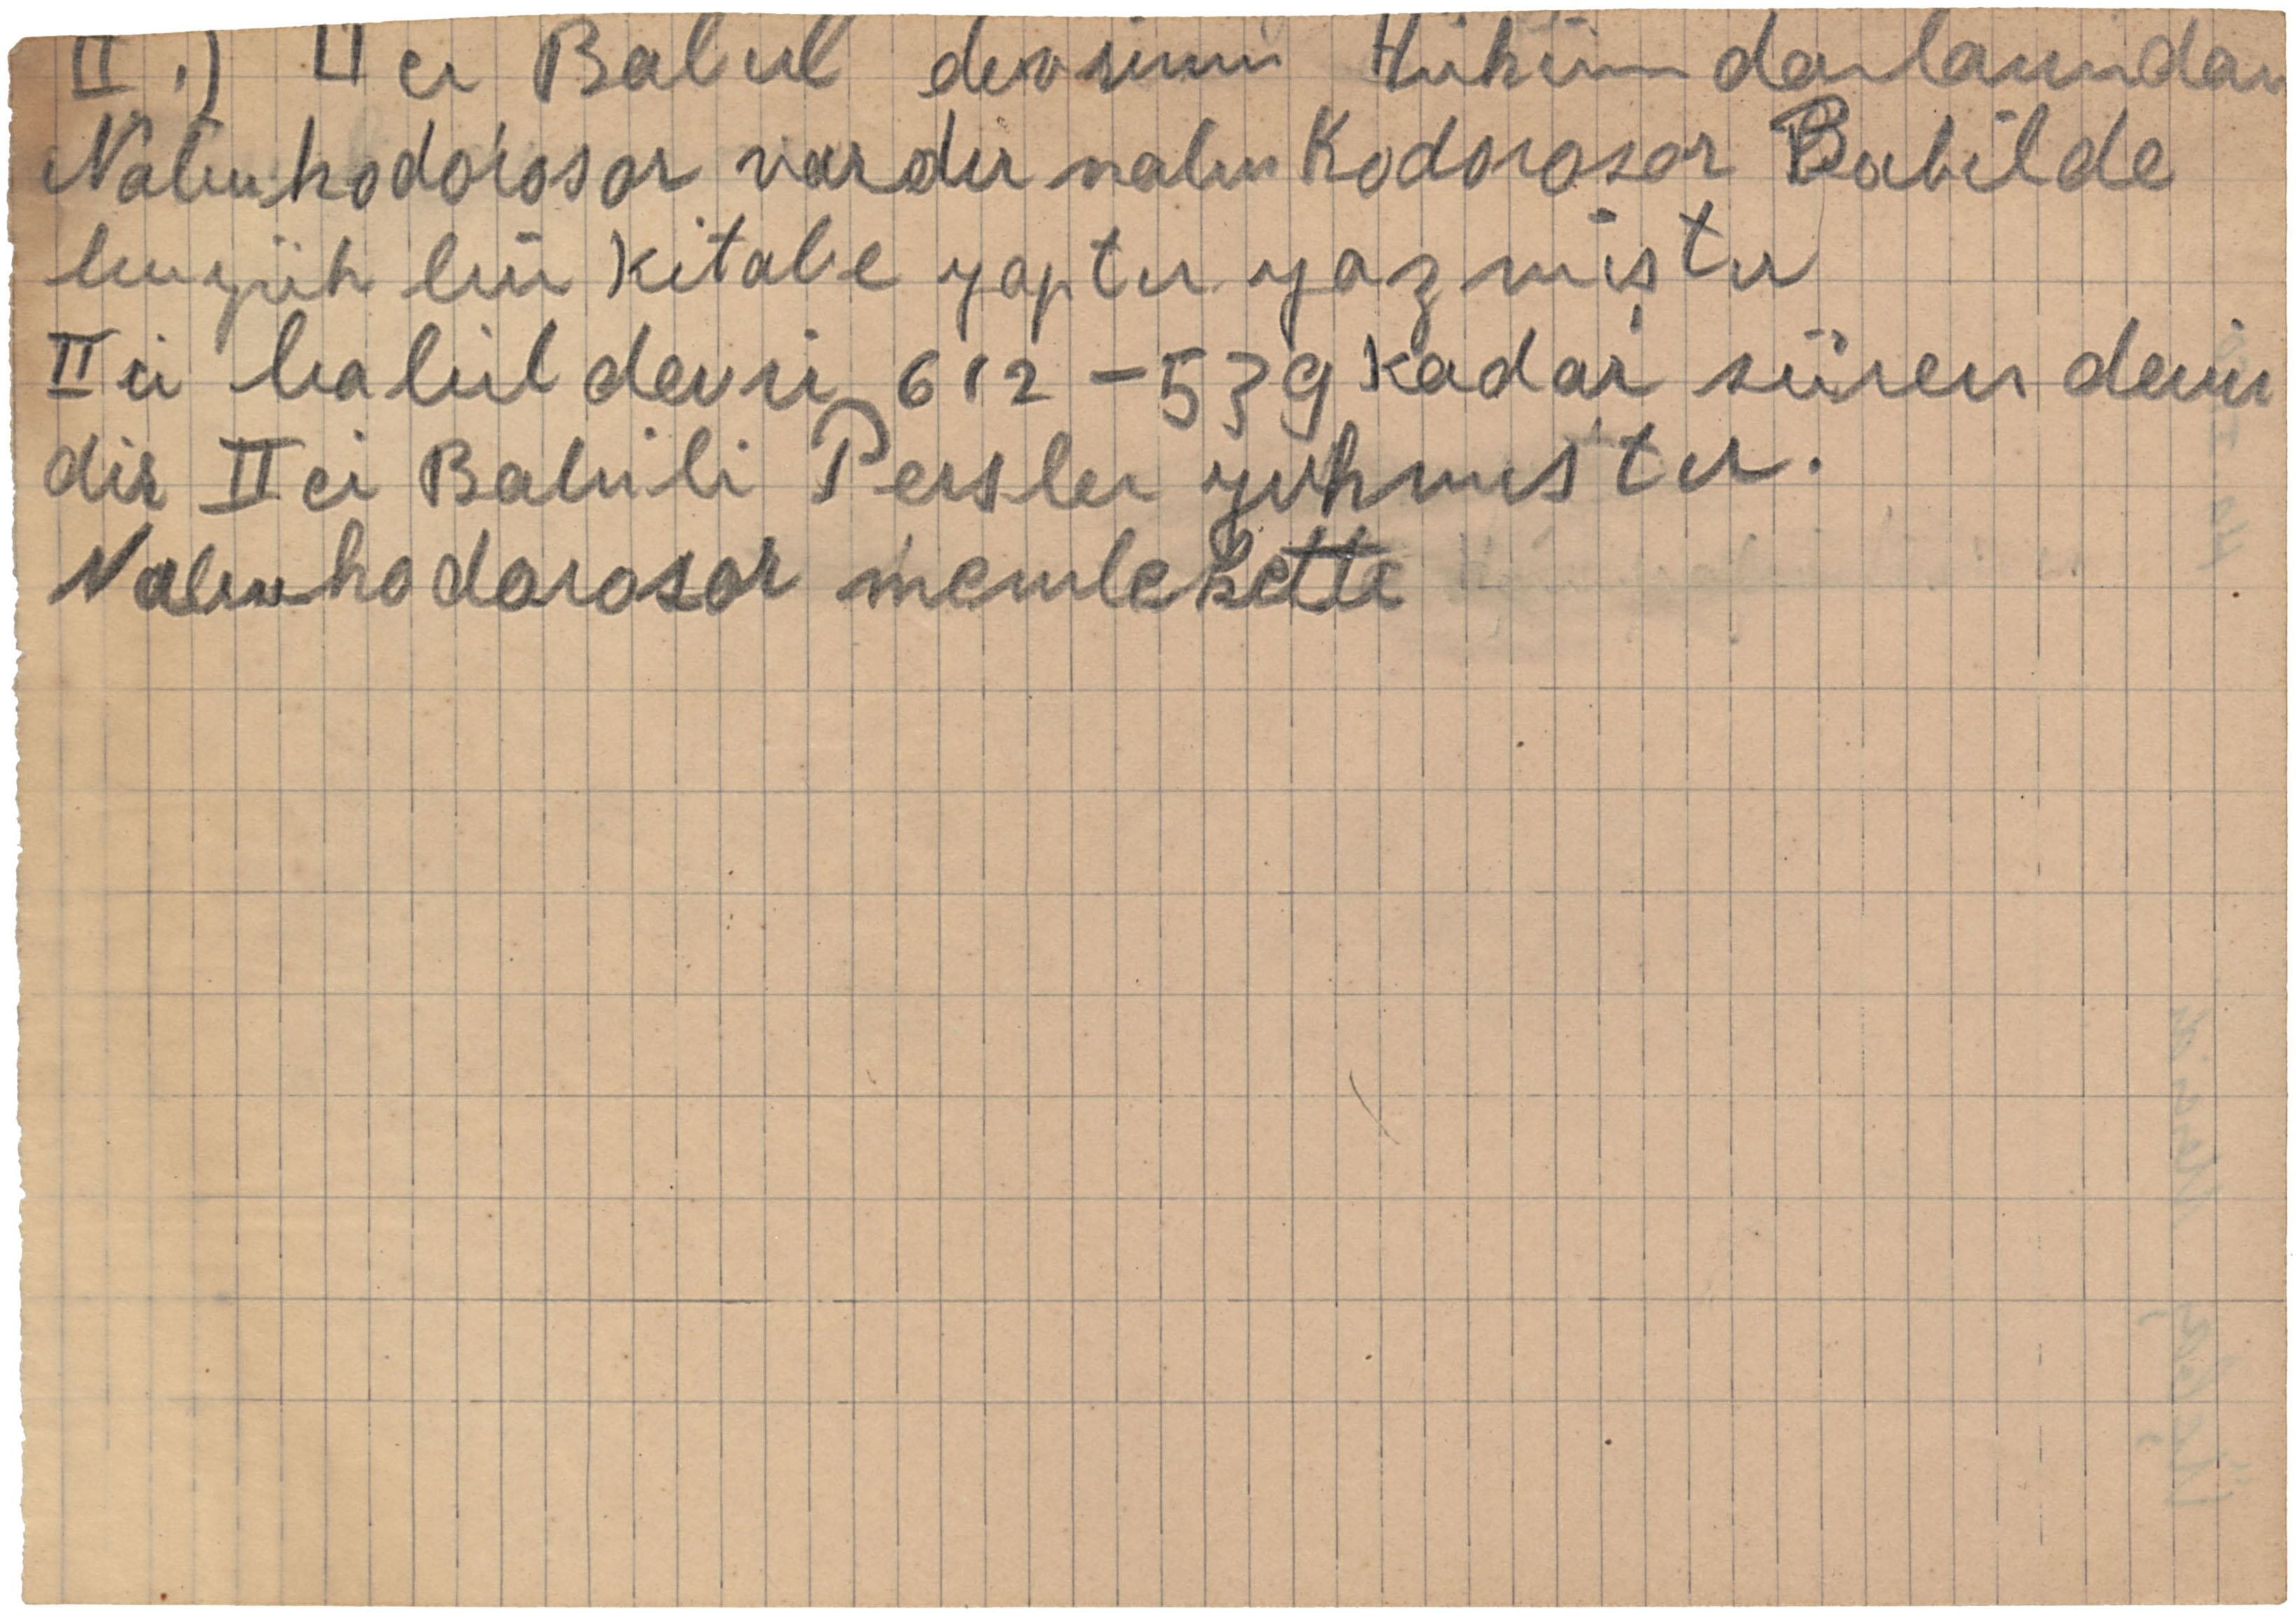 II.) II ci Babil devrinin Hükümdarlarından
Nabukodorosor vardır nabu Kodorosor Babilde
büyük bir kitabe yaptır yazmıştır
II ci babil devri 612-539 kadar süren devir
dir II ci Babili Persler yıkmıştır.
Nabukodorosor memlekette